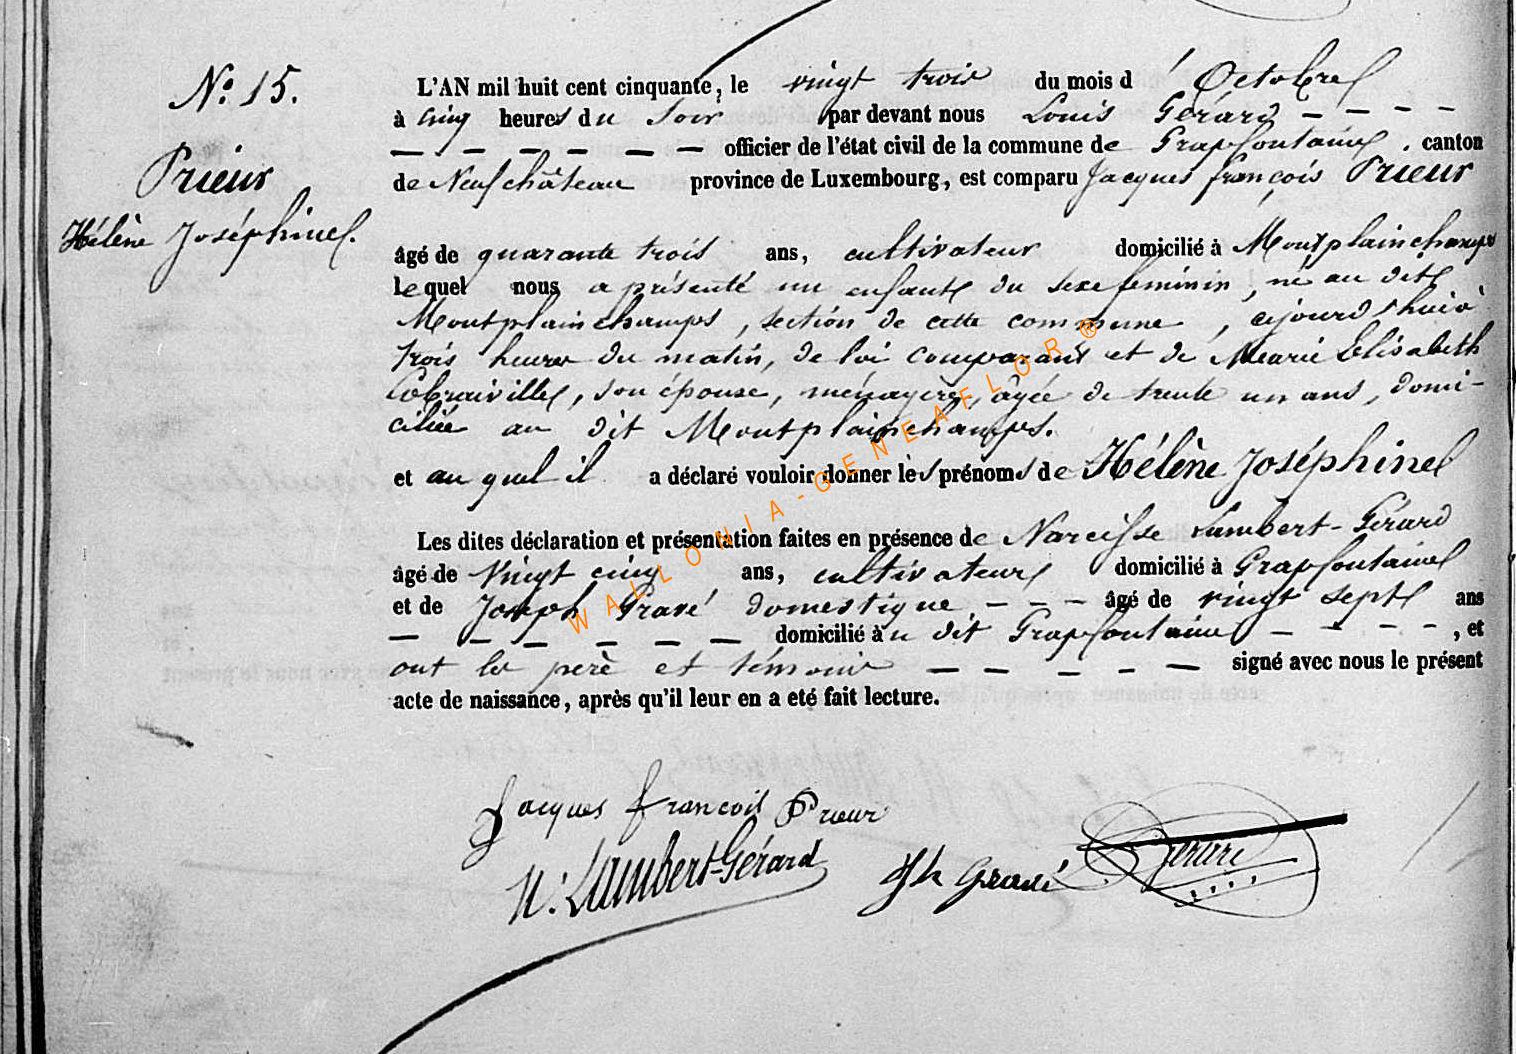 N.° 15.
Prieur
Hélène Joséphine.
L'AN mil huit cent cinquante, le vingt trois du mois d' Octobre
à cinq heures du soir par devant nous Louis Gérard – – –
– – – – – – officier de l'état civil de la commune de Grapfontaine . canton
de Neufchâteau province de Luxembourg, est comparu Jacques françois Prieur
âgé de quarante trois ans, cultivateur domicilié à Montplainchamps
lequel nous a présenté un enfant du sexe feminin, né au dit
Montplainchamps, section de cette commune, aujourd'hui à
trois heures du matin, de lui comparant et de Marie Elisabeth
Cobraiville, son épouse, ménagère, âgée de trente un ans, domi-
ciliée au dit Montplainchamps.
et au quel il a déclaré vouloir donner les prénoms de Hélène Joséphine
Les dites déclaration et présentation faites en présence de Narcisse Lambert-Gérard
âgé de vingt cinq ans, cultivateur domicilié à Grapfontaine
et de Joseph Gravé domestique – – – âgé de vingt sept ans
– – – – – – – domicilié àu dit Grapfontaine – – – –, et
ont les père et témoins – – – – – signé avec nous le présent
acte de naissance, après qu'il leur en a eté fait lecture.
Jacques François Prieur
N. Lambert-Gérard Jh Gravé Gérard
WALLONIA-GENEAFLOR®